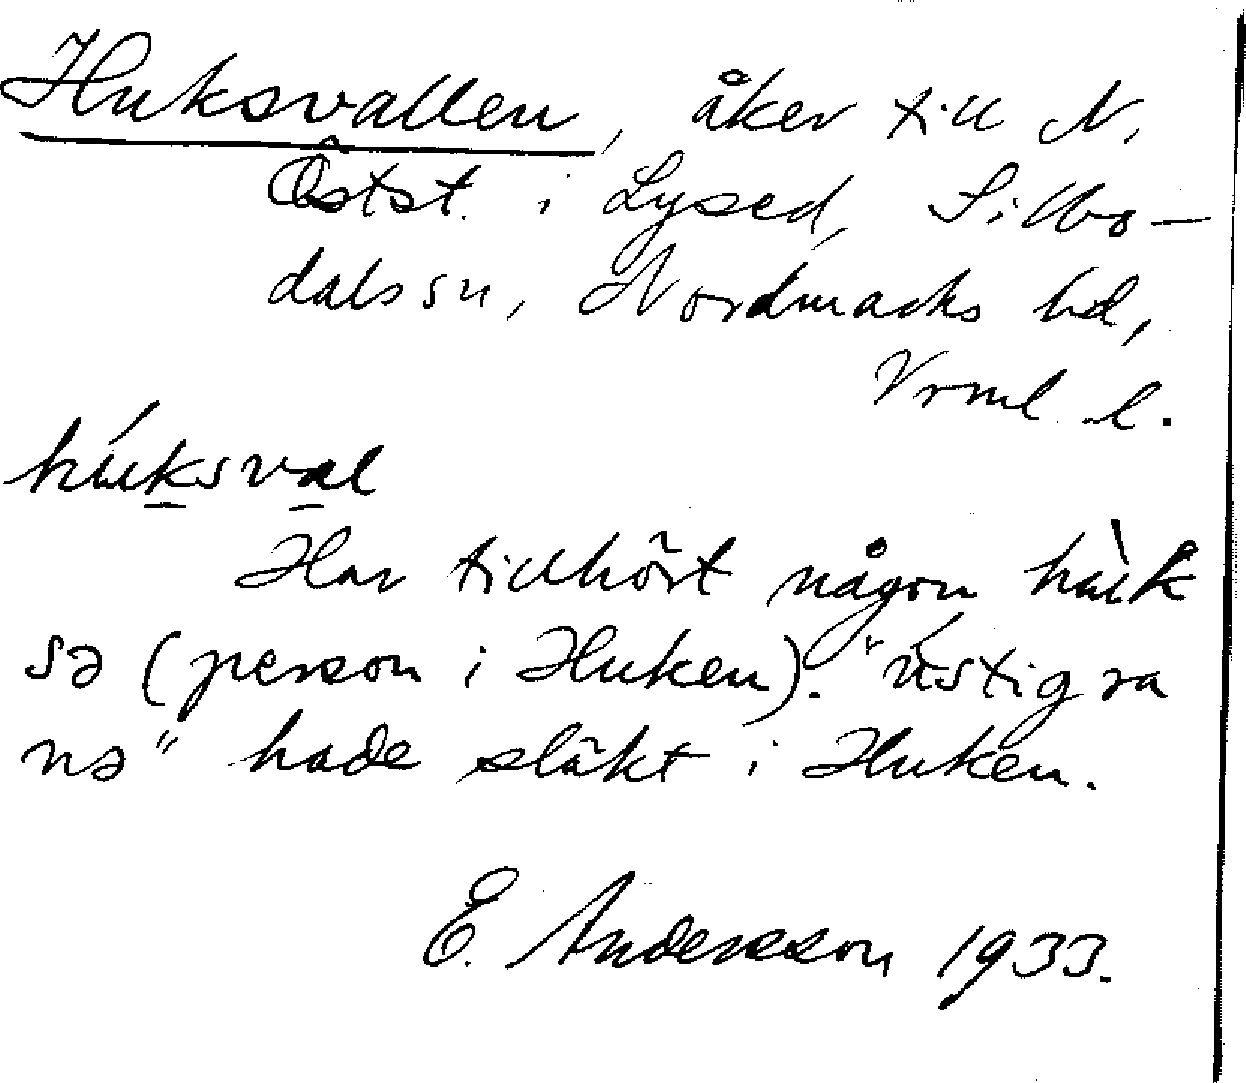 Huksvallen, åker till N.
Östst. i Lysed, Silbo-
dals sn, Nordmarks hd,
Vrml. l.
húksval
Har tillhört någon hùk
sə (person i Huken). "ústigra
nə" hade släkt i Huken.
E. Andersson 1933.